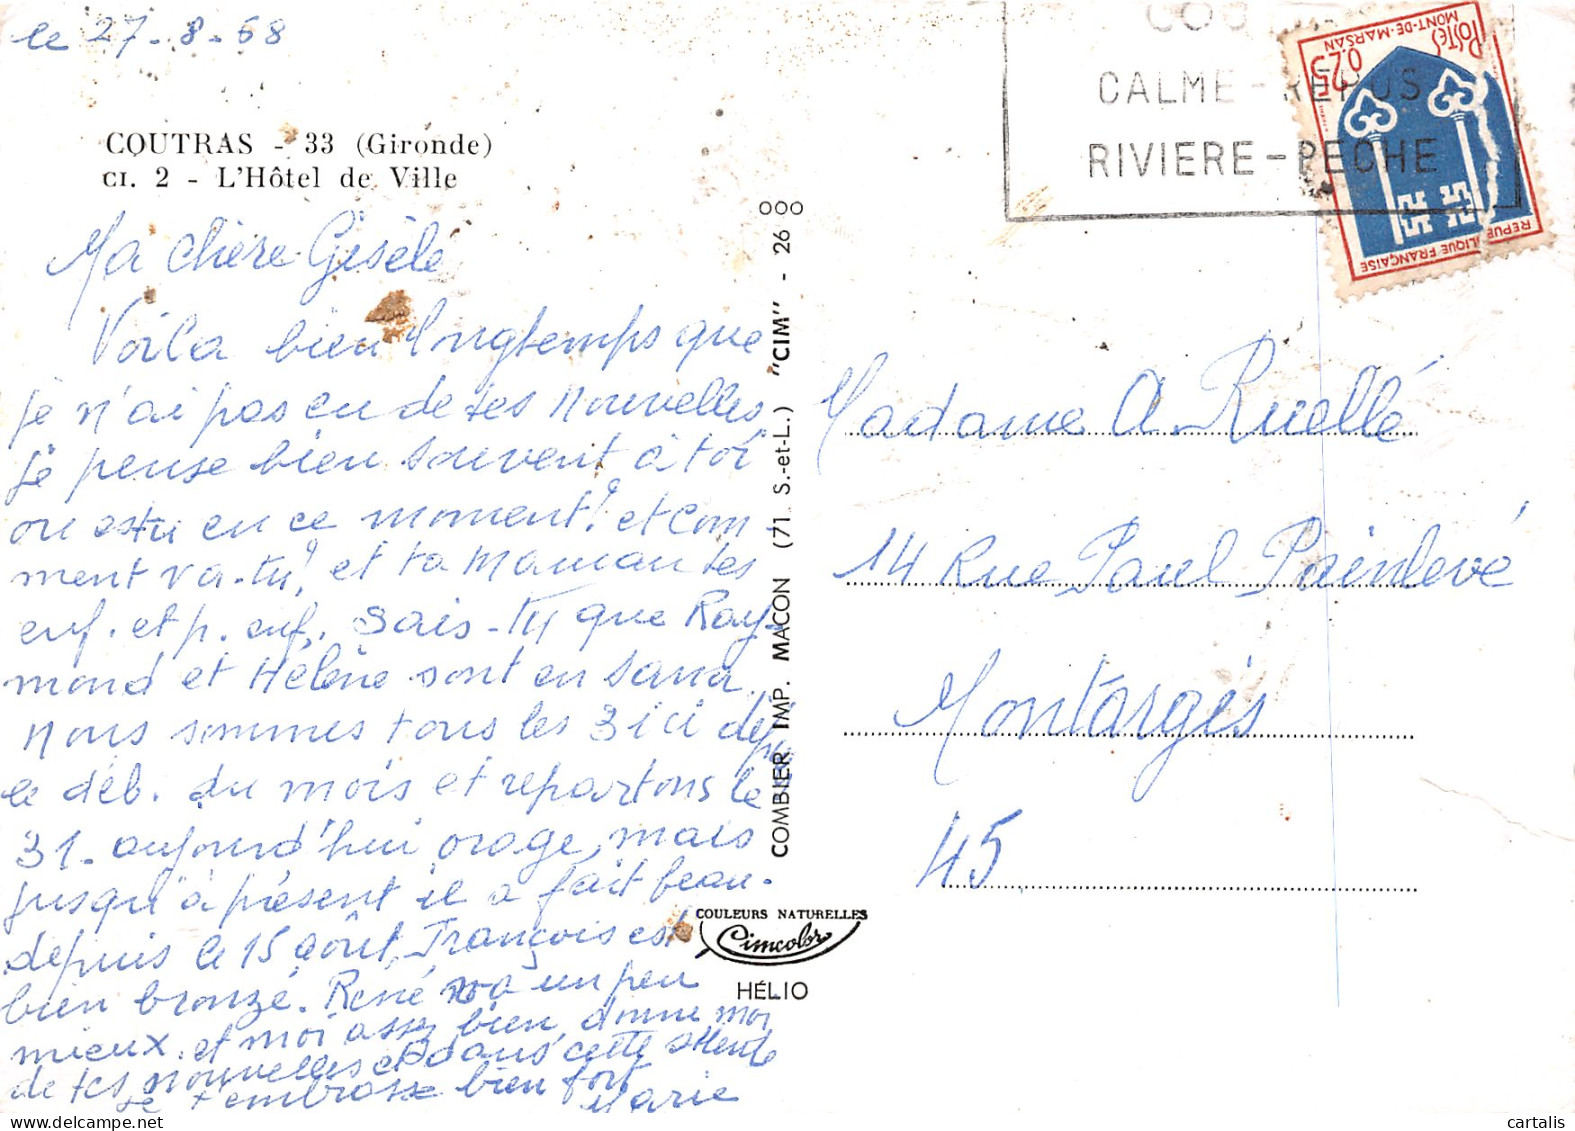 le 27-8-68
COUTRAS - 33 (Gironde)
CI. 2 - L'Hôtel de Ville
Ma chère Gisèle
Voila bien longtemps que
je n'ai pas eu de tes nouvelles
je pense bien souvent à toi
ou es-tu en ce moment? et com
ment va-tu? et ta Maman tes
enf. et p. enf. Sais-tu que Ray-
mond et Hélène sont en sana.
Nous sommes tous les 3 ici depuis
le déb. du mois et repartons le
31. aujourd'hui orage, mais
jusqu'à présent il a fait beau.
depuis le 15 août, François est
bien bronzé. René va un peu
mieux. et moi assez bien, donne moi
de tes nouvelles et dans cette attente
je t'embrasse bien fort
Marie
COMBIER IMP. MACON (71. S.-et-L.) "CIM" - 26 000
COULEURS NATURELLES
Cimcolor
HÉLIO
CALME - REPOS
RIVIERE - PECHE
POSTES
MONT-DE-MARSAN
0.25
REPUBLIQUE FRANÇAISE
Madame A. Ruellé
14 Rue Paul Painlevé
Montargis
45
cartalis
delcampe.net